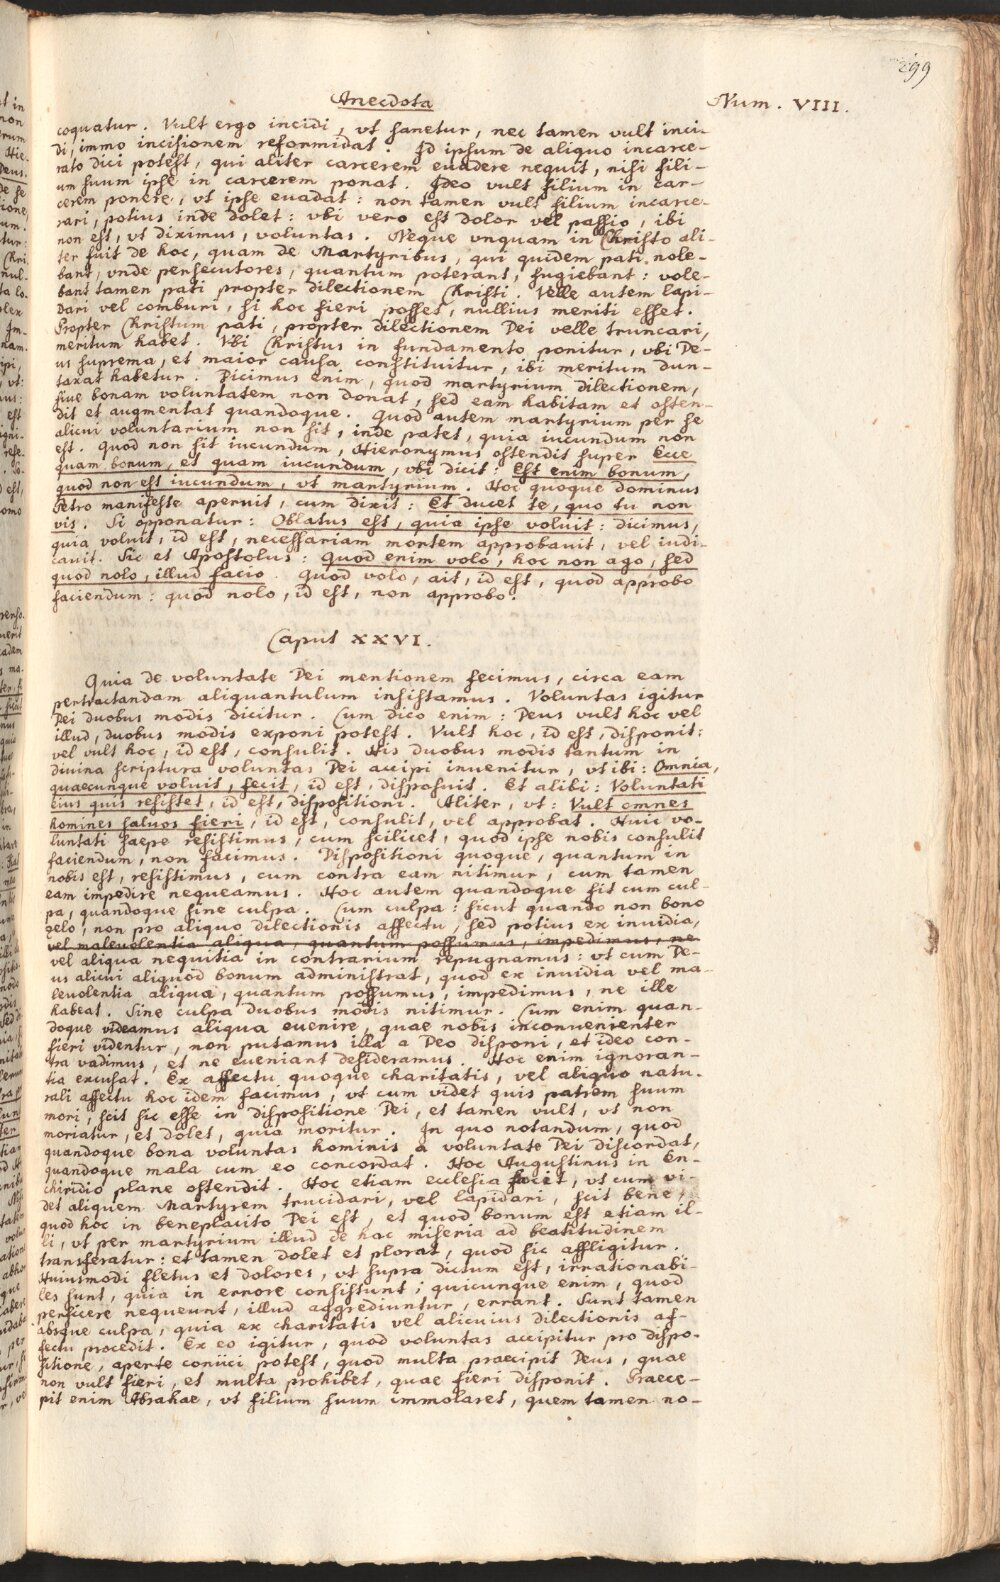 299
Anecdota
Num. VIII.
coquatur. Vult ergo incidi, vt sanetur, nec tamen vult inci-
di, immo incisionem reformidat. Id ipsum de aliquo incarce-
rato dici potest, qui aliter carcerem euadere nequit, nisi fili-
um suum ipse in carcerem ponat. Ideo vult filium in car-
cerem ponere, vt ipse euadat: non tamen vult filium incarce-
rari, potius inde dolet: vbi vero est dolor vel passio, ibi
non est, vt diximus, voluntas. Neque vnquam in Christo ali-
ter fuit de hoc, quam de Martyribus, qui quidem pati nole-
bant, vnde persecutores, quantum poterant, fugiebant: vole-
bant tamen pati propter dilectionem Christi. Velle autem lapi-
dari vel comburi, si hoc fieri posset, nullius meriti esset.
Propter Christum pati, propter dilectionem Dei velle truncari,
meritum habet. Vbi Christus in fundamento ponitur, vbi De-
us suprema, et maior causa constituitur, ibi meritum dun-
taxat habetur. Dicimus enim, quod martyrium dilectionem,
siue bonam voluntatem non donat, sed eam habitam et osten-
dit et augmentat quandoque. Quod autem martyrium per se
alicui voluntarium non sit, inde patet, quia iucundum non
est. Quod non sit iucundum, Hieronymus ostendit super Ecce
quam bonum, et quam iucundum, vbi dicit: Est enim bonum,
quod non est iucundum, vt martyrium. Hoc quoque dominus
Petro manifeste aperuit, cum dixit: Et ducet te, quo tu non
vis. Si opponatur: Oblatus est, quia ipse voluit: dicimus,
quia voluit, id est, necessariam mortem approbauit, vel iudi-
cauit. Sic et Apostolus: Quod enim volo, hoc non ago, sed
quod nolo, illud facio. Quod volo, ait, id est, quod approbo
faciendum: quod nolo, id est, non approbo.
Caput XXVI.
Quia de voluntate Dei mentionem fecimus, circa eam
pertractandam aliquantulum insistamus. Voluntas igitur
Dei duobus modis dicitur. Cum dico enim: Deus vult hoc vel
illud, duobus modis exponi potest. Vult hoc, id est, disponit:
vel vult hoc, id est, consulit. His duobus modis tantum in
diuina scriptura voluntas Dei accipi inuenitur, vt ibi: Omnia,
quaecunque voluit, fecit, id est, disposuit. Et alibi: Voluntati
eius quis resistet, id est, dispositioni. Aliter, vt: Vult omnes
homines saluos fieri, id est, consulit, vel approbat. Huic vo-
luntati saepe resistimus, cum scilicet, quod ipse nobis consulit
faciendum, non facimus. Dispositioni quoque, quantum in
nobis est, resistimus, cum contra eam nitimur, cum tamen
eam impedire nequeamus. Hoc autem quandoque fit cum cul-
pa, quandoque sine culpa. Cum culpa: sicut quando non bono
zelo, non pro aliquo dilectionis affectu, sed potius ex inuidia,
vel maleuolentia aliqua, quantum possumus, impedimus, ne
vel aliqua nequitia in contrarium repugnamus: vt cum De-
us alicui aliquod bonum administrat, quod ex inuidia vel ma-
leuolentia aliqua, quantum possumus, impedimus, ne ille
habeat. Sine culpa duobus modis nitimur. Cum enim quan-
doque videamus aliqua euenire, quae nobis inconuenienter
fieri videntur, non putamus illa a Deo disponi, et ideo con-
tra vadimus, et ne eueniant desideramus. Hoc enim ignoran-
tia excusat. Ex affectu quoque charitatis, vel aliquo natu-
rali affectu hoc idem facimus, vt cum videt quis patrem suum
mori, scit sic esse in dispositione Dei, et tamen vult, vt non
moriatur, et dolet, quia moritur. In quo notandum, quod
quandoque bona voluntas hominis a voluntate Dei discordat,
quandoque mala cum eo concordat. Hoc Augustinus in En-
chiridio plane ostendit. Hoc etiam ecclesia facit, vt cum vi-
det aliquem Martyrem trucidari, vel lapidari, scit bene,
quod hoc in beneplacito Dei est, et quod bonum est etiam il-
li, vt per martyrium illud de hac miseria ad beatitudinem
transferatur: et tamen dolet et plorat, quod sic affligitur.
Huiusmodi fletus et dolores, vt supra dictum est, irrationabi-
les sunt, quia in errore consistunt; quicunque enim, quod
perficere nequeunt, illud aggrediuntur, errant. Sunt tamen
absque culpa, quia ex charitatis vel alicuius dilectionis af-
fectu procedit. Ex eo igitur, quod voluntas accipitur pro dispo-
sitione, aperte coniici potest, quod multa praecipit Deus, quae
non vult fieri, et multa prohibet, quae fieri disponit. Praece-
pit enim Abrahae, vt filium suum immolaret, quem tamen no-